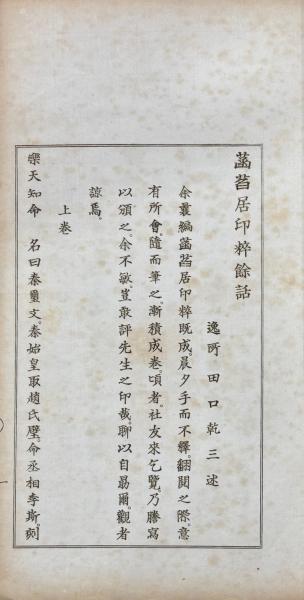 菡萏居印粹餘話
逸所 田口乾三述
余曩編菡萏居印粹既成。晨夕手而不釋。翻閱之際。意
有所會。隨而筆之。漸積成卷。頃者。社友來乞覽。乃謄寫
以頒之。余不敏豈敢評先生之印哉。聊以自勗爾。觀者
諒焉。
上卷
樂天知命 名曰秦璽文。秦始皇取趙氏璧。命丞相李斯。刻